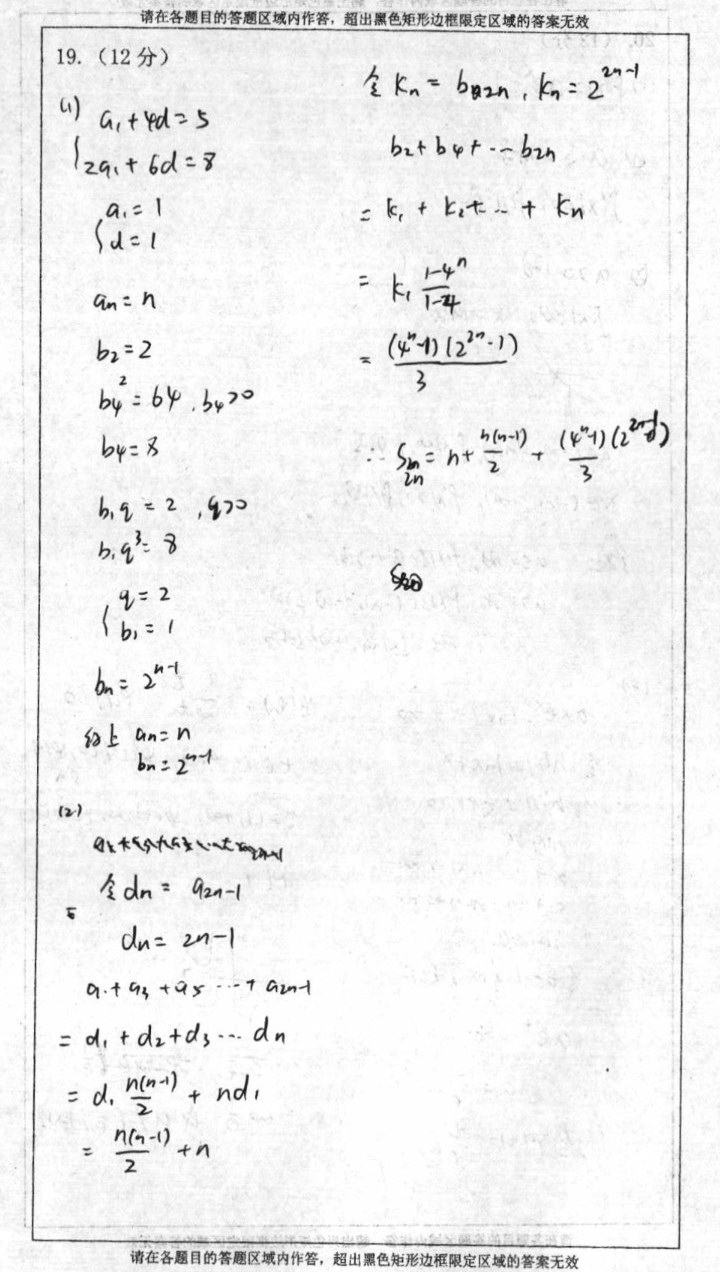 请在各题目的答题区域内作答，超出黑色矩形边框限定区域的答案无效
19.（12分）
(1) a₁+4d=5
2a₁+6d=8
a₁=1
d=1
aₙ=n
b₂=2
b₄²=64, b₄>0
b₄=8
b₁q=2, q>0
b₁q³=8
q=2
b₁=1
bₙ=2ⁿ⁻¹
综上 aₙ=n
bₙ=2ⁿ⁻¹
(2)
令dₙ=a₂ₙ₋₁
dₙ=2n-1
a₁+a₃+a₅…+a₂ₙ₋₁
=d₁+d₂+d₃…dₙ
=d₁ n(n-1)/2 + nd₁
=n(n-1)/2 +n
令Kₙ=b₂ₙ, kₙ=2²ⁿ⁻¹
b₂+b₄+…b₂ₙ
=k₁+k₂+…+kₙ
=k₁ (1-4ⁿ)/(1-4)
=(4ⁿ-1)(2²ⁿ-1)/3
∴S₂ₙ=n+n(n-1)/2+(4ⁿ-1)(2²ⁿ⁻¹)/3
请在各题目的答题区域内作答，超出黑色矩形边框限定区域的答案无效